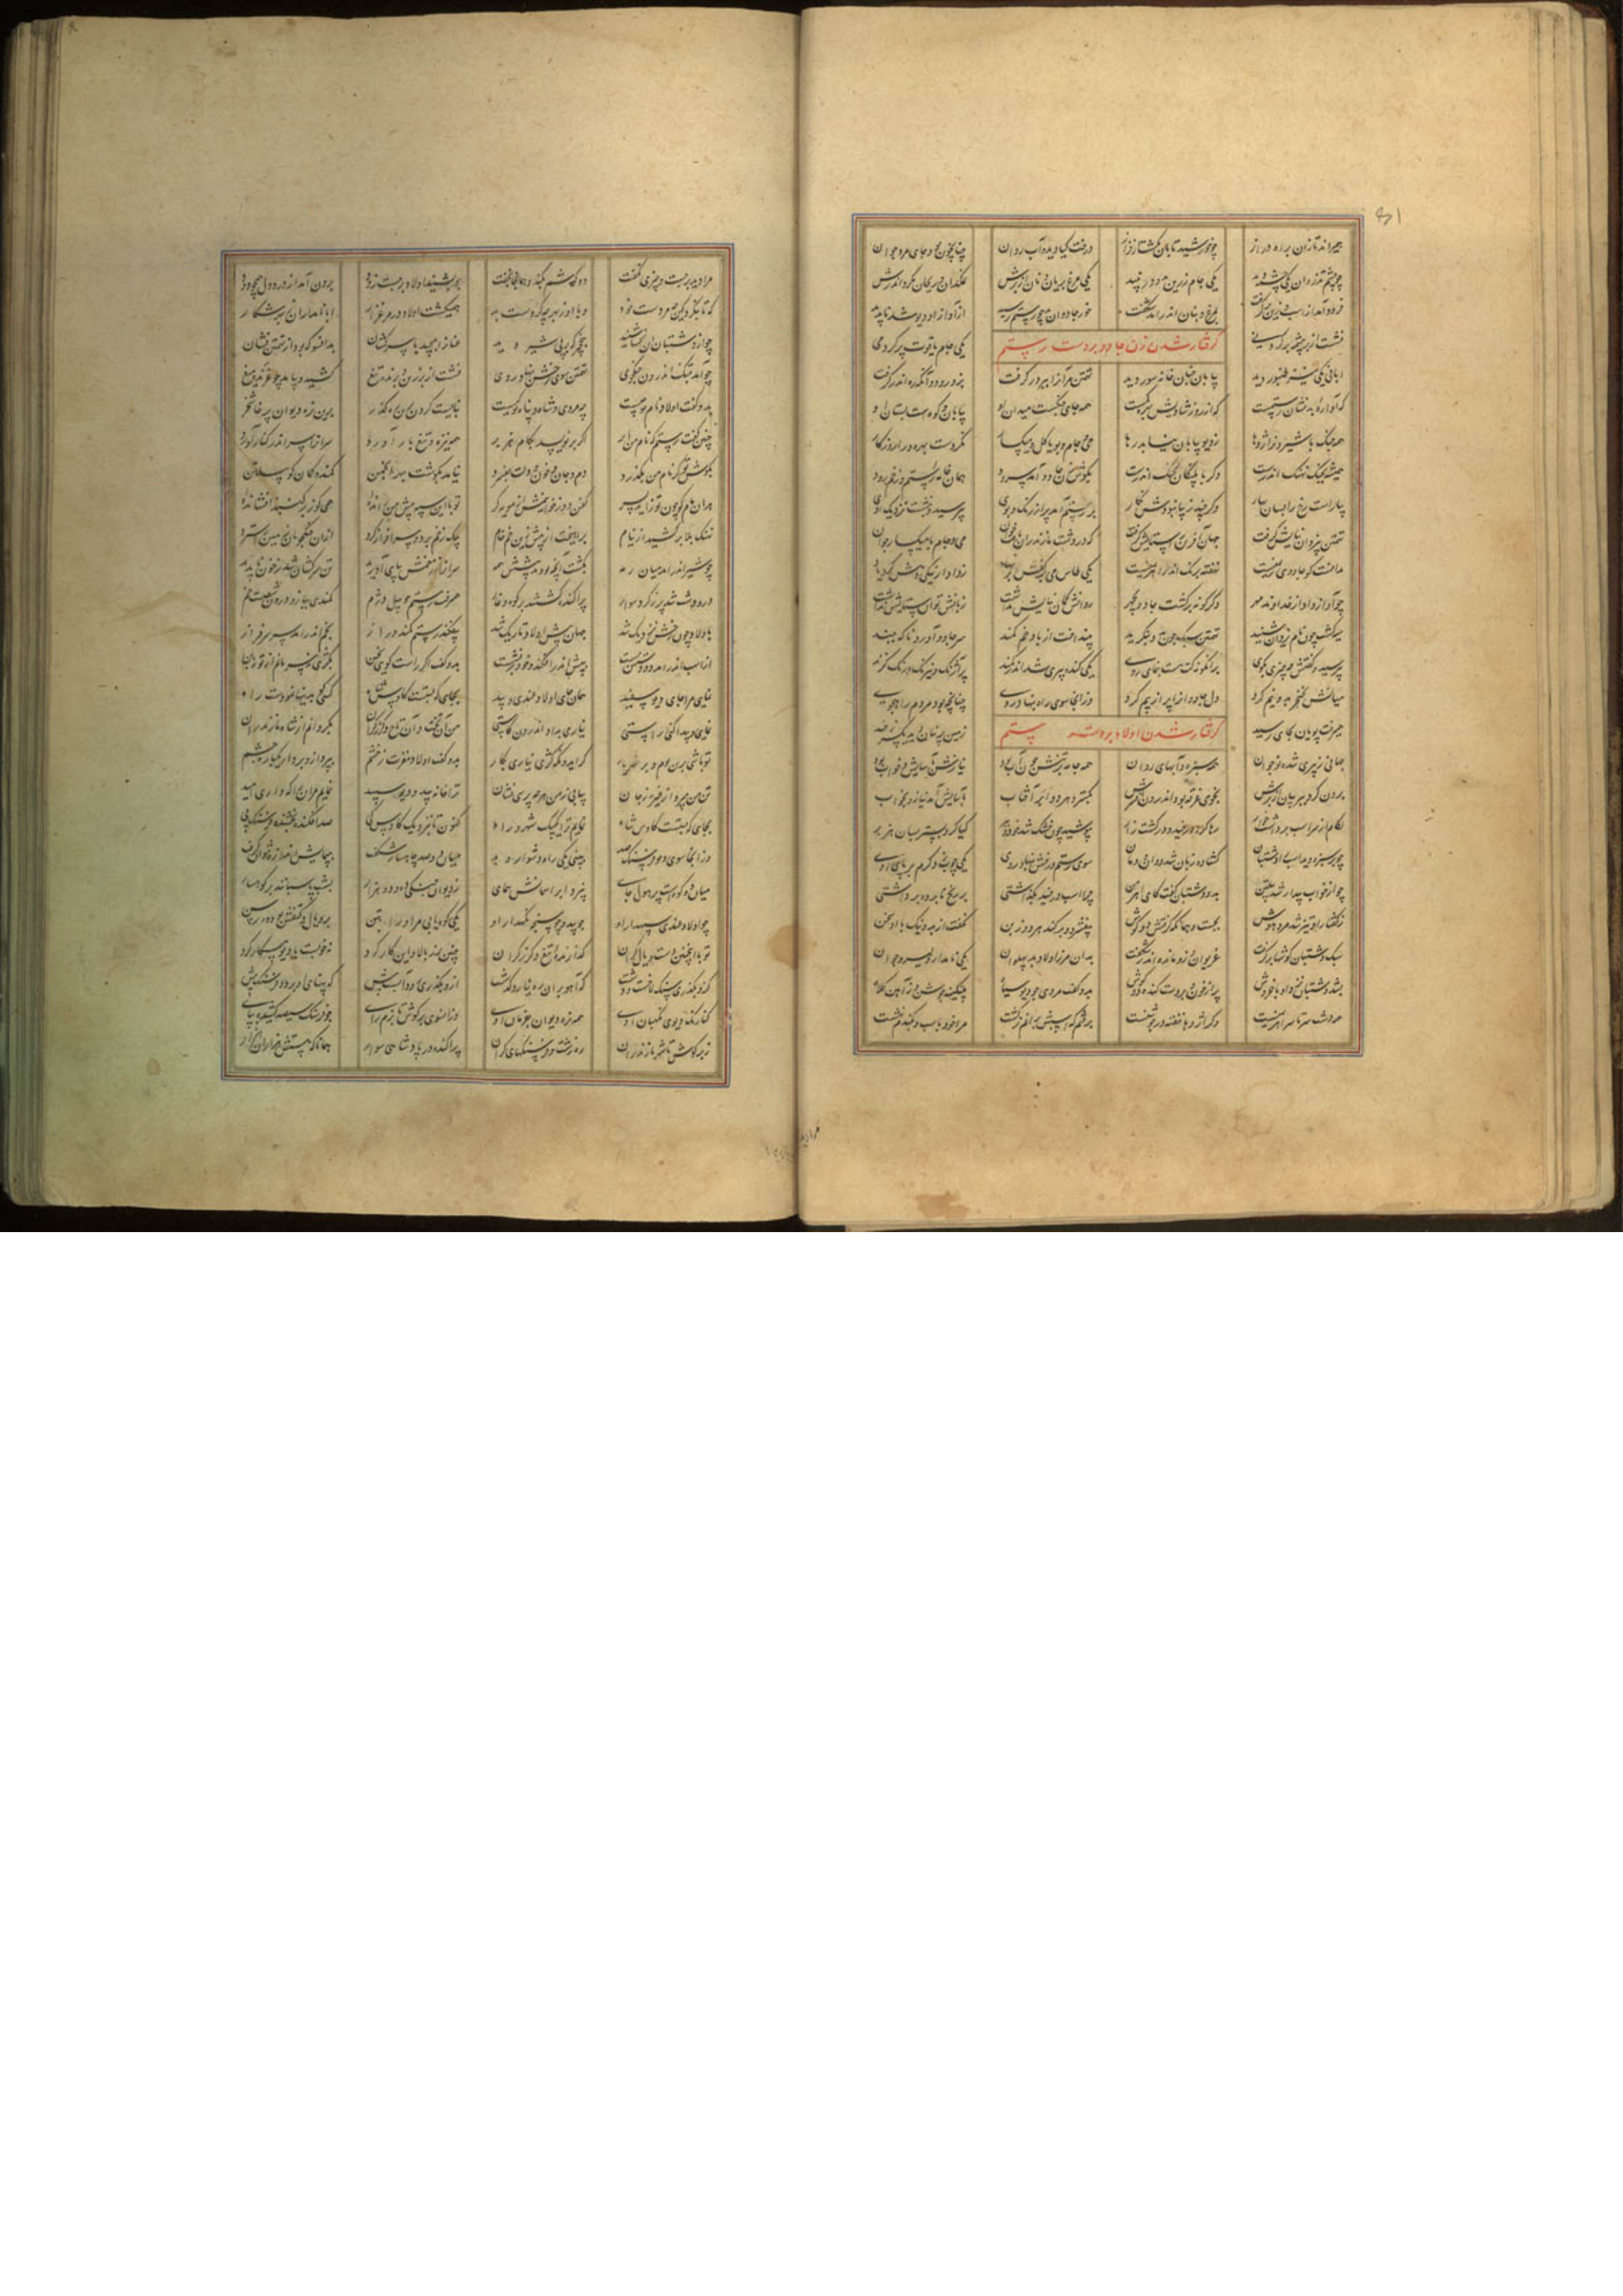 همیراند تازان براه دراز چو خورشید تابان بگشت از فراز درخت و گیا دید و آب روان چنانچون بود جای مرد جوان
چو چشم تذروان یکی چشمه دید یکی جام زرین نبید یکی مرغ بریان و نان از برش نمکدان و ریحان گرد اندرش
فرود آمد از اسب و زین برگرفت بمرغ و بنان اندر آمد شگفت خور جادوان بد چو رستم رسید از آواز او دیو شد ناپدید
نشست از بر چشمه یکی جام یاقوت پر کرد می
گرفتار شدن زن جادو بر دست رستم
ابا می یکی نیز طنبور دید بیابان چنان خانه سور دید تهمتن مر آنرا ببر در گرفت بزد رود و آنگه ره اندر گرفت
که آواره بد نشان رستمست که از روز شادیش بهره کمست همه جای جنگست میدان او بیابان و کوهست بستان او
همه جنگ با شیر و نر اژدها ز دیو و بیابان نیابد رها می و جام و بویا گل و میگسار نکردست بهره ورا روزگار
همیشه بجنگ نهنگ اندرست وگر با پلنگان بجنگ اندرست بگوش زن جادو آمد سرود همان ناله رستم و زخم رود
بیاراست رخ را بسان بهار وگر چند زیبا نبودش نگار بر رستم آمد پر از رنگ و بوی بپرسید و بنشست نزدیک اوی
تهمتن بیزدان نیایش گرفت جهان آفرین را ستایش گرفت که در دشت مازندران یافت خوان می و جام با میگسار جوان
ندانست کو جادوی ریمنست نهفته برنگ اندر اهریمنست یکی طاس می بر کفش بر نهاد ز دادار نیکی دهش کرد یاد
چو آواز داد از خداوند مهر دگر گونه برگشت جادو بچهر روانش گمان نیایش نداشت زبانش توان ستایش نداشت
سیه گشت چون نام یزدان شنید تهمتن سبک چون درو بنگرید بینداخت از باد خم کمند سر جادو آورد ناگه ببند
بپرسید و گفتش چه چیزی بگوی برانگونه کت هست بنمای روی یکی گنده پیری شد اندر کمند پر آژنگ و نیرنگ و رنگ و گزند
میانش بخنجر بدو نیم کرد دل جادوان زو پر از بیم کرد وز آنجا سوی راه بنهاد روی چنانچون بود مردم راه جوی
همیرفت پویان بجایی رسید زمین پرنیان دید یکسر ز خوید
گرفتار شدن اولاد بر دست رستم
جهانی ز پیری شده نوجوان همه سبزه و آبهای روان همه جامه بر تنش چون آب بود نیازش بآسایش و خواب بود
برون کرد ببر بیان از برش بخوی غرقه بود اندرون مغفرش بگسترد هر دو بر آفتاب بآسایش آمد نیاز و بخواب
لگام از سر اسب برداشت خوار رها کرد بر خوید در کشت زار بپوشید چون خشک شد خود و ببر گیا کرد بستر بسان هزبر
چو در سبزه دید اسب را دشتبان گشاده زبان شد دوان و دمان سوی رستم و رخش بنهاد روی یکی چوب زد گرم بر پای اوی
چو از خواب بیدار شد پیلتن بدو دشتبان گفت کای اهرمن چرا اسب در خوید بگذاشتی بر رنج نابرده برداشتی
ز گفتار او تیز شد مرد هوش بجست و همانگه گرفتش دو گوش بیفشرد و برکند هر دو ز بن نگفت از بد و نیک با او سخن
سبک دشتبان گوشها برگرفت غریوان ازو مانده اندر شگفت بدان مرز اولاد بد پهلوان یکی نامدار دلیر و جوان
بشد دشتبان نزد او با خروش پر از خون و بر دست کنده دو گوش بدو گفت مردی چو دیو سیاه پلنگینه جوشن ز آهن کلاه
همه دشت سرتاسر اهریمنست وگر اژدها خفته در جوشنست برفتم که اسبش برانم ز کشت مرا خود باسب و بکشته نهشت
مرا دید برجست و چیزی نگفت دو گوشم بکند و همانجا بخفت چو بشنید اولاد برجست زود برون آمد از درد دل همچو دود
که تا بنگرد کین چه مردست خود وبا او ز بهر چه کردست بد همیگشت اولاد در مرغزار ابا نامداران ز بهر شکار
چو از دشتبان آن سخنها شنید بنخچیر گه بر پی شیر دید عنان را بپیچید با سرکشان بدانسو که بود از تهمتن نشان
چو آمد بتنگ اندرون جنگجوی تهمتن سوی رخش بنهاد روی نشست از بر زین و برنده تیغ کشید و بیامد چو غرنده میغ
بدو گفت اولاد نام تو چیست چه مردی و شاه و پناه تو کیست نبایست کردن برین ره گذر برین ره دیوان پرخاشخر
چنین گفت رستم که نام من ابر اگر هزبر همه نیزه و تیغ بار آورد سرانرا سر اندر کنار آورد
بگوش تو گر نام من بگذرد دم و جان و خون و دلت بفسرد نیامد بگوشت بهر انجمن کمند و کمان گو پیلتن
هر آن مام کو چون تو زاید پسر کفن دوز خوانیمش ار مویه گر تو با این سپه پیش من رانده همی گوز بر گنبد افشانده
نهنگ بلا برکشید از نیام براهیخت از پیش زین خم خام بیک زخم دو سر افراز گرد از آن جنگجویان زمین سترد
چو شیر اندر آمد میان رمه بکشت آنکه بود پیشش همه سرانرا ز زخمش بپای آورید تن سرکشان شد ز خون ناپدید
در و دشت شد پر ز گرد سوار پراکنده گشتند بر کوه و غار همیرفت رستم چو پیل دژم کمندی ببازو درون شصت خم
باولاد چون رخش نزدیک شد جهان پیش اولاد تاریک شد بیفکند رستم کمند دراز بخم اندر آمد سر سرفراز
از اسب اندر آمد دو دستش ببست بپیش اندر افکند و خود برنشست بدو گفت اگر راست گویی سخن بکژی نه سر یابم از تو نه بن
نمایی مرا جای دیو سپید همان جای اولاد غندی و بید بجایی که بستست کاوس شاه کسی کو ببد مینمودست راه
نمایی و پیدا کنی راستی نیاری بداد اندرون کاستی من آن تخت و آن تاج و گرز گران بگردانم از شاه مازندران
تو باشی برین بوم و بر شهریار گر ایدونکه کژی نیاری بکار بدو گفت اولاد مغزت ز خشم بپرداز و بردار یکباره چشم
تن من مپرداز خیره ز جان بیابی ز من هرچه پرسی نشان ترا خانه بید و دیو سپید نمایم مر آن را که داری امید
بجایی که بستست کاوس شاه نمایم ترا یک بیک شهر و راه کنون تا بنزدیک کاوس کی صد افکنده بخشنده فرسنگ پی
وز آنجا سوی دیو فرسنگ صد ببینی یکی راه دشوار و بد میان دو صد چاهسار شگفت بپیمایش اندازه نتوان گرفت
میان دو کوهست پر هول جای نپرد بر آسمانش همای ز دیوان جنگی ده و دو هزار بشب پاسبانند بر کوهسار
چو اولاد غندی سپهدار او چو بید و چو سنجه نگهدار او یکی کوه یابی مر او را بتن بر و یال و کتفش بود ده رسن
تو با اینچنین دست و یال گران گذارنده تیغ و گرز گران چنین برز بالا و این کار کرد نه خوبست با دیو پیکار کرد
کزو بگذری سنگلاخست و دشت که آهو بر آن ره نیارد گذشت ازو بگذری رود آبست پیش که پهنای او بر دو فرسنگ بیش
کنارنگ دیوی نگهبان اوی همه نره دیوان بفرمان اوی وز آنسوی بر گوش تا نرم پای چو فرسنگ سیصد کشیده سرای
ز بر گوش تا شهر مازندران ره زشت و فرسنگهای گران پراکنده در پادشاهی سوار همانا که هستش هزاران هزار